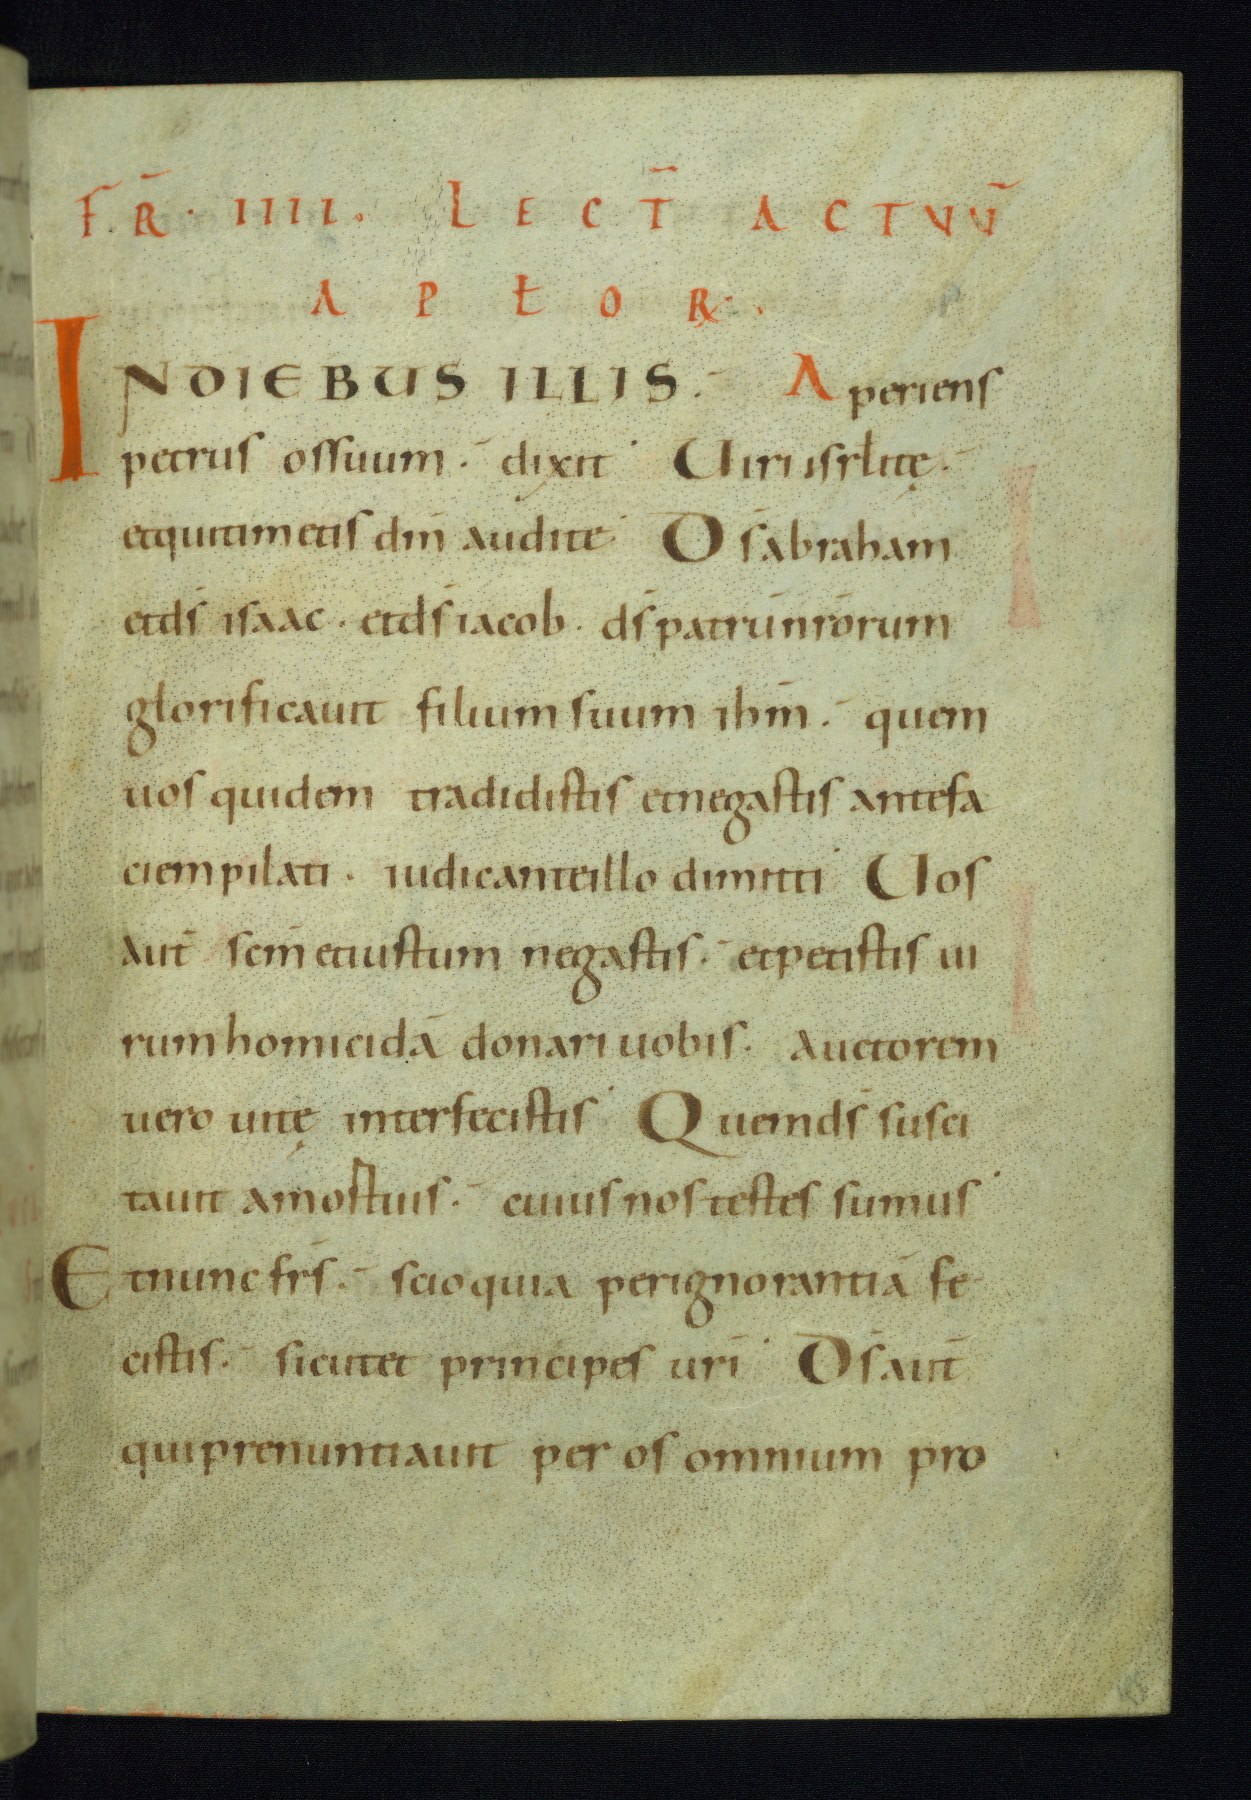 FR̄· IIII. LECT̄ ACTVV̄
APŁOR·.
INDIEBUS ILLIS. Aperiens
petrus ossuum. dixit Uiri isrłitę.
etquitimetis dm̄ audite D̄s abraham
etds̄ isaac. etds̄ iacob. ds̄ patrūnr̄orum
glorificauit filium suum ihm̄. quem
uos quidem tradidistis etnegastis antefa
ciempilati. iudicanteillo dimitti Uos
aut̄ scm̄ etiustum negastis. etpetistis ui
rumhomicidā donari uobis. Auctorem
uero uitę interfecistis Quemds̄ susci
tauit amortuis. cuius nos testes sumus
Etnunc frs̄. scioquia perignorantiā fe
cistis. sicutet principes uri̅ D̄s aut̄
quiprenuntiauit per os omnium pro